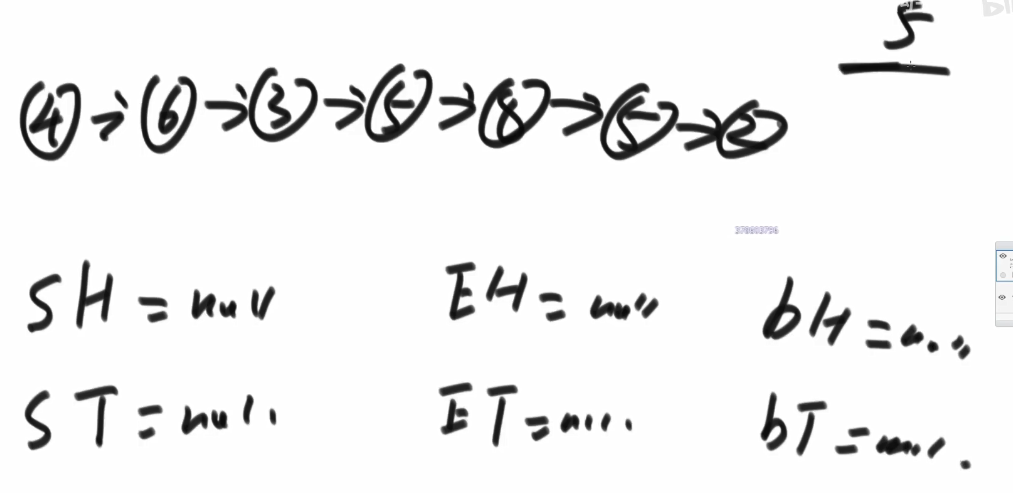 5
④→⑥→③→⑤→⑧→⑤→②
378803796
SH = null EH = null bH = null
ST = null ET = null bT = null